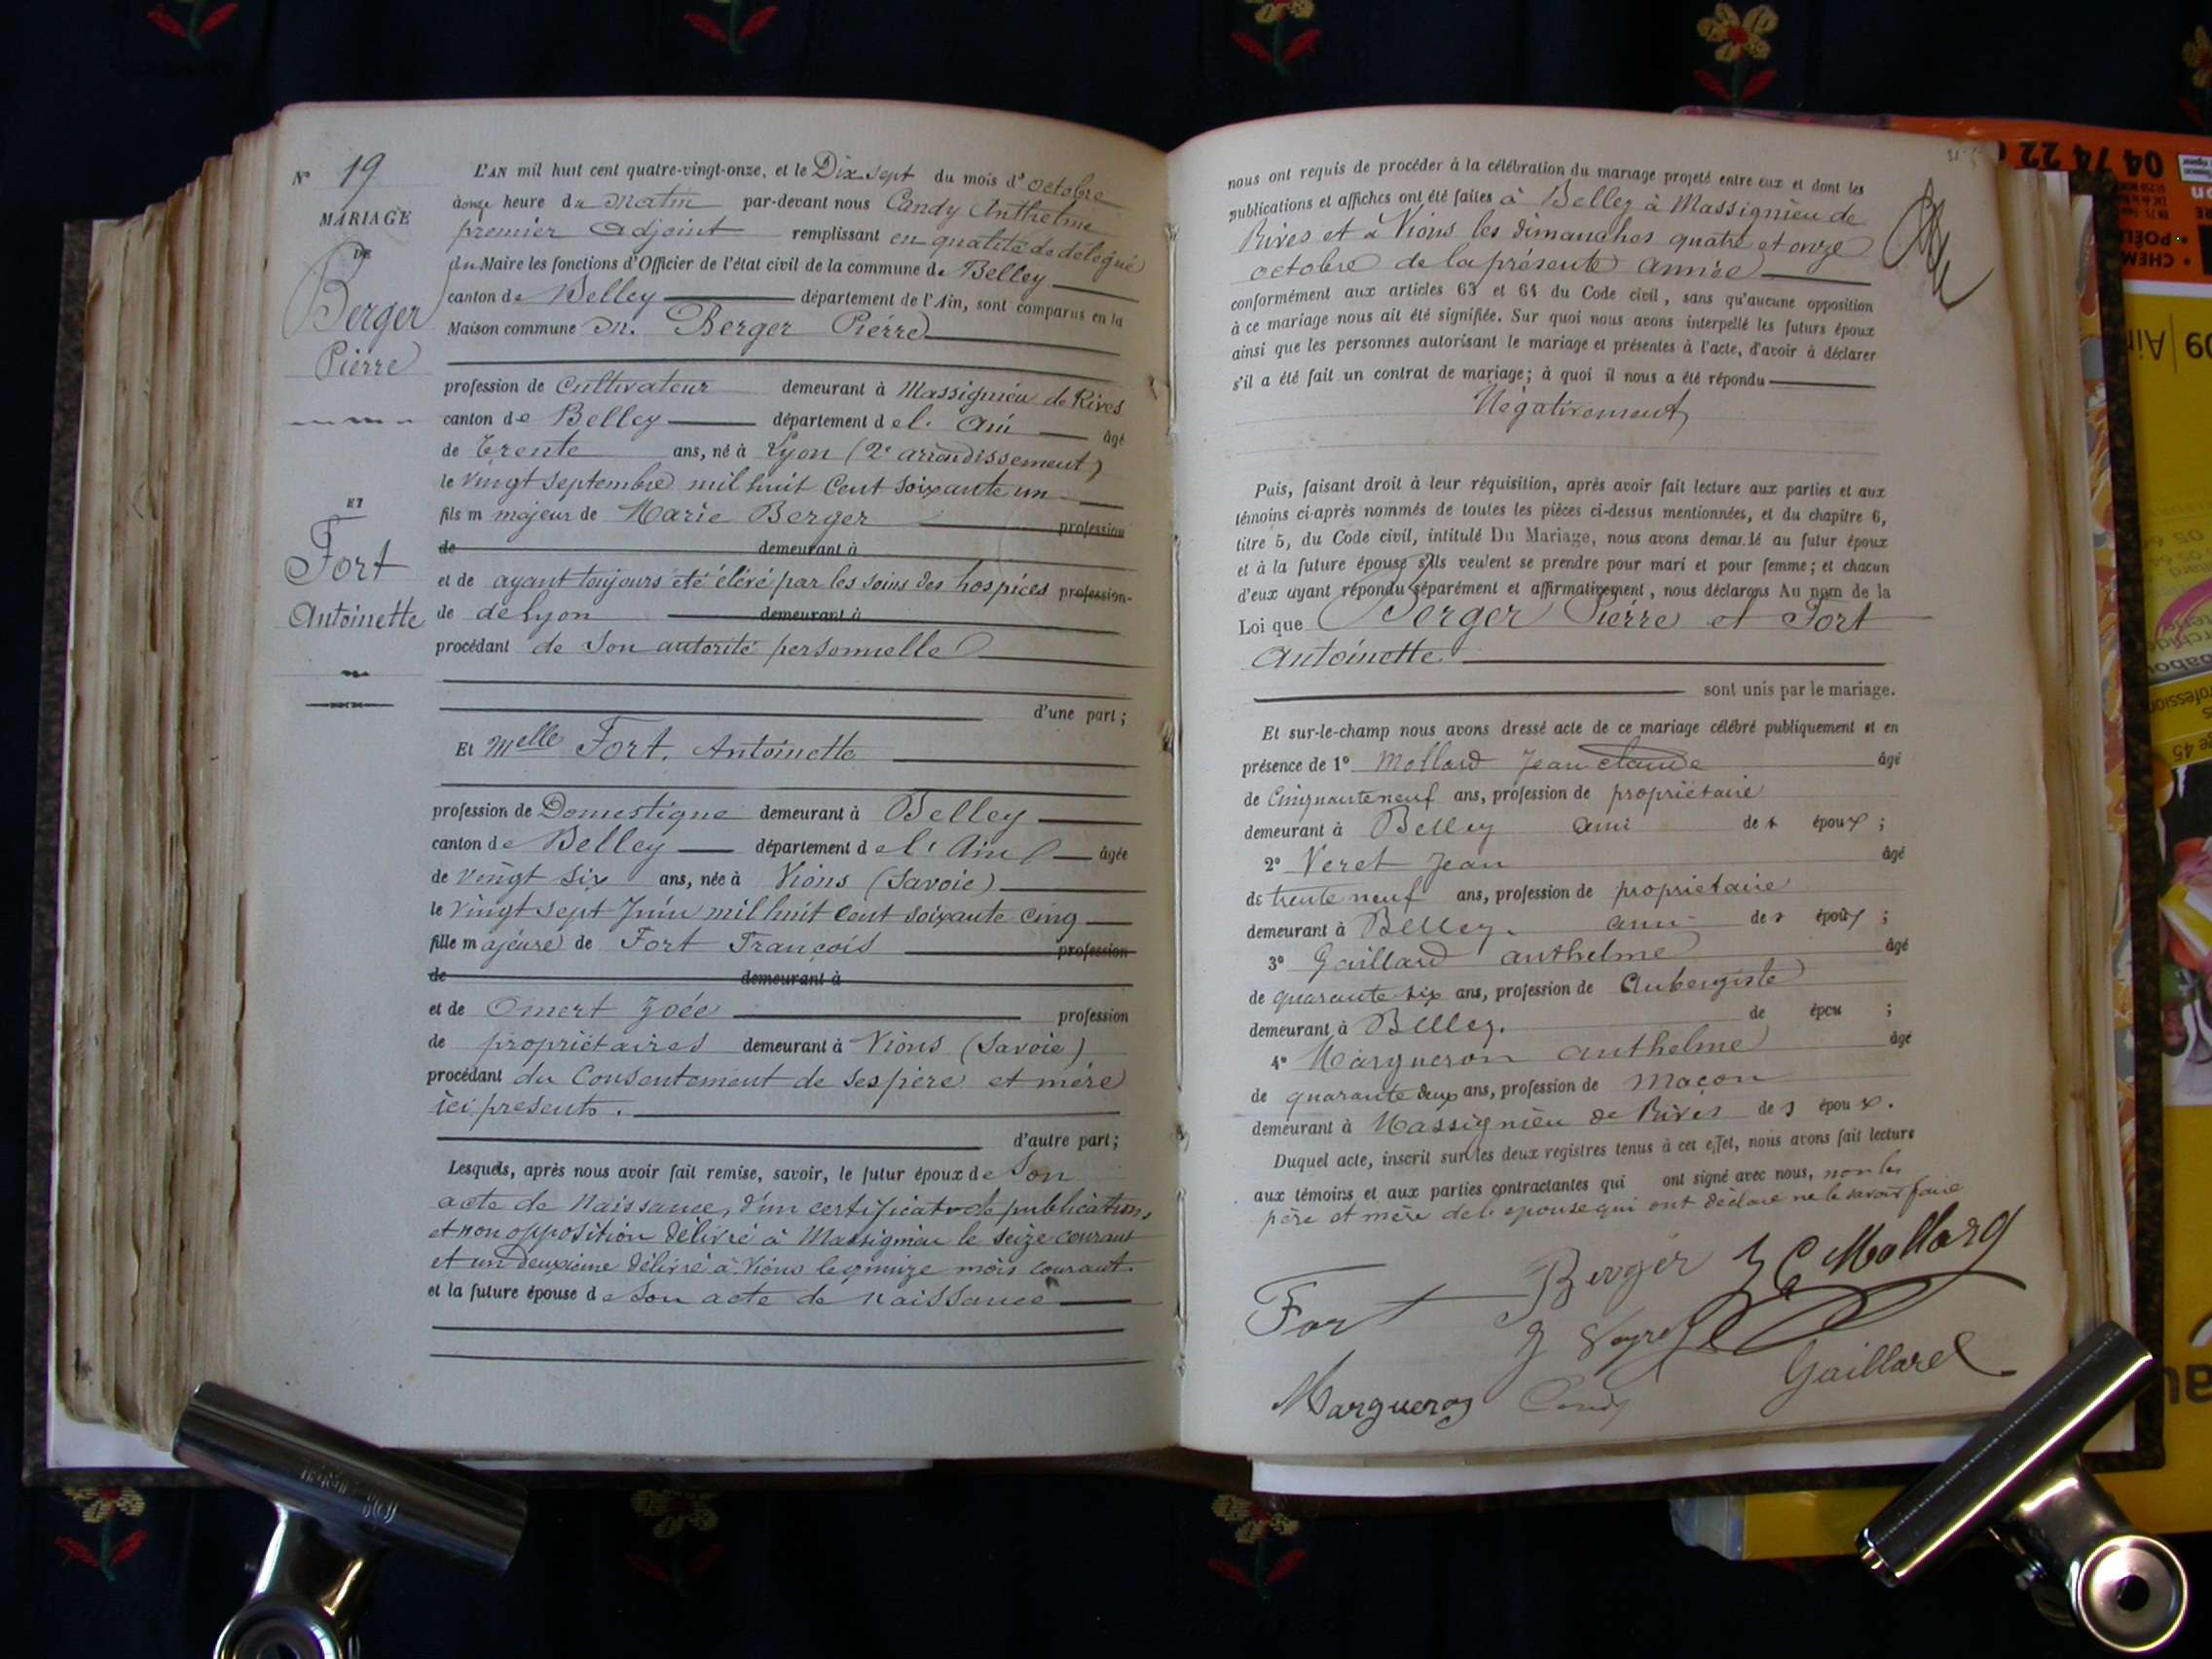 N° 19
MARIAGE
DE
Berger
Pierre
ET
Fort
Antoinette
L'AN mil huit cent quatre-vingt-onze, et le Dix sept du mois d'octobre
à onze heure du matin par-devant nous Candy Anthelme
premier adjoint remplissant en qualité de délégué
du Maire les fonctions d'Officier de l'état civil de la commune de Belley
canton de Belley département de l'Ain, sont comparus en la
Maison commune M. Berger Pierre
profession de Cultivateur demeurant à Massignieu de Rives
canton de Belley département de l'Ain âgé
de Trente ans, né à Lyon (2e arrondissement)
le vingt septembre mil huit cent soixante un
fils majeur de Marie Berger profession
de demeurant à
et de ayant toujours été élévé par les soins des hospices profession
de de Lyon demeurant à
procédant de son autorité personnelle
d'une part;
Et Melle Fort. Antoinette
profession de Domestique demeurant à Belley
canton de Belley département de l'Ain âgée
de vingt six ans, née à Vions (Savoie)
le vingt sept Juin mil huit cent soixante cinq
fille majeure de Fort François profession
de demeurant à
et de Omert Zoée profession
de propriétaires demeurant à Vions (Savoie)
procédant du Consentement de ses père et mère
ici présents.
d'autre part;
Lesquels, après nous avoir fait remise, savoir, le futur époux de son
acte de Naissance, d'un certificat de publications
et non opposition délivré à Massignieu le seize courant
et un deuxième délivré à Vions le quinze mois courant.
et la future épouse de son acte de naissance
nous ont requis de procéder à la célébration du mariage projeté entre eux et dont les
publications et affiches ont été faites à Belley à Massignieu de
Rives et à Vions les dimanches quatre et onze
octobre de la présente année
conformément aux articles 63 et 64 du Code civil, sans qu'aucune opposition
à ce mariage nous ait été signifiée. Sur quoi nous avons interpellé les futurs époux
ainsi que les personnes autorisant le mariage et présentes à l'acte, d'avoir à déclarer
s'il a été fait un contrat de mariage; à quoi il nous a été répondu
Négativement
Puis, faisant droit à leur réquisition, après avoir fait lecture aux parties et aux
témoins ci-après nommés de toutes les pièces ci-dessus mentionnées, et du chapitre 6,
titre 5, du Code civil, intitulé Du Mariage, nous avons demandé au futur époux
et à la future épouse s'ils veulent se prendre pour mari et pour femme; et chacun
d'eux ayant répondu séparément et affirmativement, nous déclarons Au nom de la
Loi que Berger Pierre et Fort
Antoinette
sont unis par le mariage.
Et sur-le-champ nous avons dressé acte de ce mariage célébré publiquement et en
présence de 1° Mollard Jean Claude âgé
de Cinquante neuf ans, profession de propriétaire
demeurant à Belley ami des époux;
2° Veret Jean âgé
de trente neuf ans, profession de propriétaire
demeurant à Belley. ami des époux;
3° Gaillard anthelme âgé
de quarante six ans, profession de Aubergiste
demeurant à Belley. de épou ;
4° Margueron anthelme âgé
de quarante deux ans, profession de maçon
demeurant à Massignieu de Rives des époux.
Duquel acte, inscrit sur les deux registres tenus à cet effet, nous avons fait lecture
aux témoins et aux parties contractantes qui ont signé avec nous, non les
père et mère de l'épouse qui ont déclaré ne le savoir faire
Fort Berger J C Mollard
Margueron Candy Gaillard
04 74 22